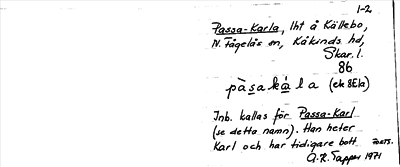 1-2
Passa-Karla, lht å Källebo,
N. Fågelås sn, Kåkinds hd,
Skar. l.
86
pàsaká l a (ek 8Ela)
Inb. kallas för Passa-Karl
(se detta namn). Han heter
Karl och har tidigare bott
FORTS.
G. R. Tapper 1971